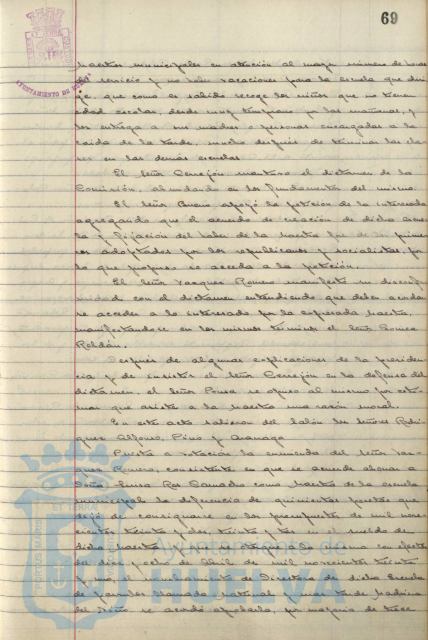 69
AYUNTAMIENTO DE HUELVA
Maestros municipales en atención al mayor número de horas
de servicio y no haber vacaciones para la escuela que diri-
ge, que como es sabido recoge los niños que no tienen
edad escolar, desde muy temprano por las mañanas, y
los entrega a sus madres o personas encargadas a la
caida de la tarde, mucho después de terminar las cla-
ses en las demás escuelas.
El señor Cerrejón mantuvo el dictamen de la
Comisión, abundando en los fundamentos del mismo.
El señor Bueno apoyó la petición de la interesada
agregando que el acuerdo de creación de dicha escue-
la y fijación del haber de la Maestra fue de los prime-
ros adoptados por los republicanos y socialistas, por
lo que propuso se acceda a la petición.
El señor Vazquez Romero manifestó su disconfor-
midad con el dictamen entendiendo que debía acordar-
se acceder a lo interesado por la expresada Maestra,
manifestandose en los mismos terminos el señor Gomez
Roldán.
Después de algunas explicaciones de la presiden-
cia y de insistir el señor Cerrejón en la defensa del
dictamen, el señor Ponce se opuso al mismo por esti-
mar que asiste a la Maestra una razón moral.
En este acto salieron del Salón los señores Rodri-
guez Alfonso, Pino y
Puesta a votación la enmienda del señor Vaz-
quez Romero, consistente en que se acuerde abonar a
Doña Luisa Ros como Maestra de la escuela
municipal la diferencia de quinientas pesetas que
dejó de consignarse en los presupuestos de mil nove-
cientos treinta y dos, treinta y tres en el sueldo de
dicha Maestra
del diez y ocho de Abril de mil novecientos treinta
y uno, el nombramiento de Directora de dicha Escuela
de parvulos llamada Maternal y mas tarde Jardines
del Niño se acordó aprobarla, por mayoria de trece
Ayuntamiento de
HUELVA
PORTUS MARIS ET TERRAE CUSTODIA